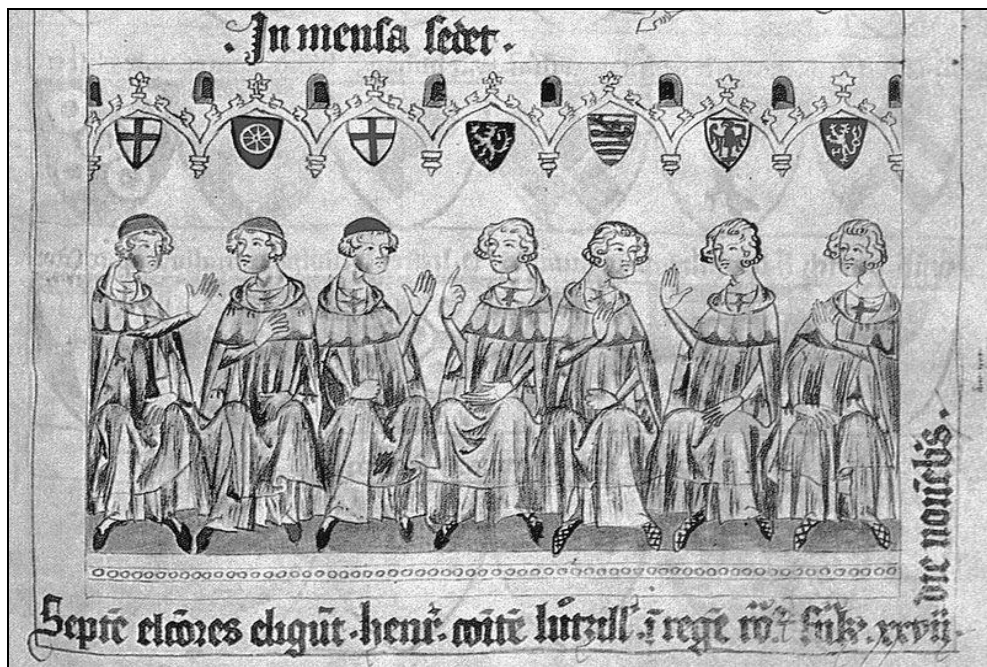 · In mensa sedet ·
Septē elc̄ores eligūt · henr̄ · cōitē lutzill' · ī regē rō
xxvii ·
die novēbis ·